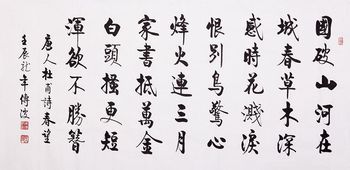 國破山河在
城春草木深
感時花濺淚
恨別鳥驚心
烽火連三月
家書抵萬金
白頭搔更短
渾欲不勝簪
唐人杜甫詩春望
壬辰龍年傳波